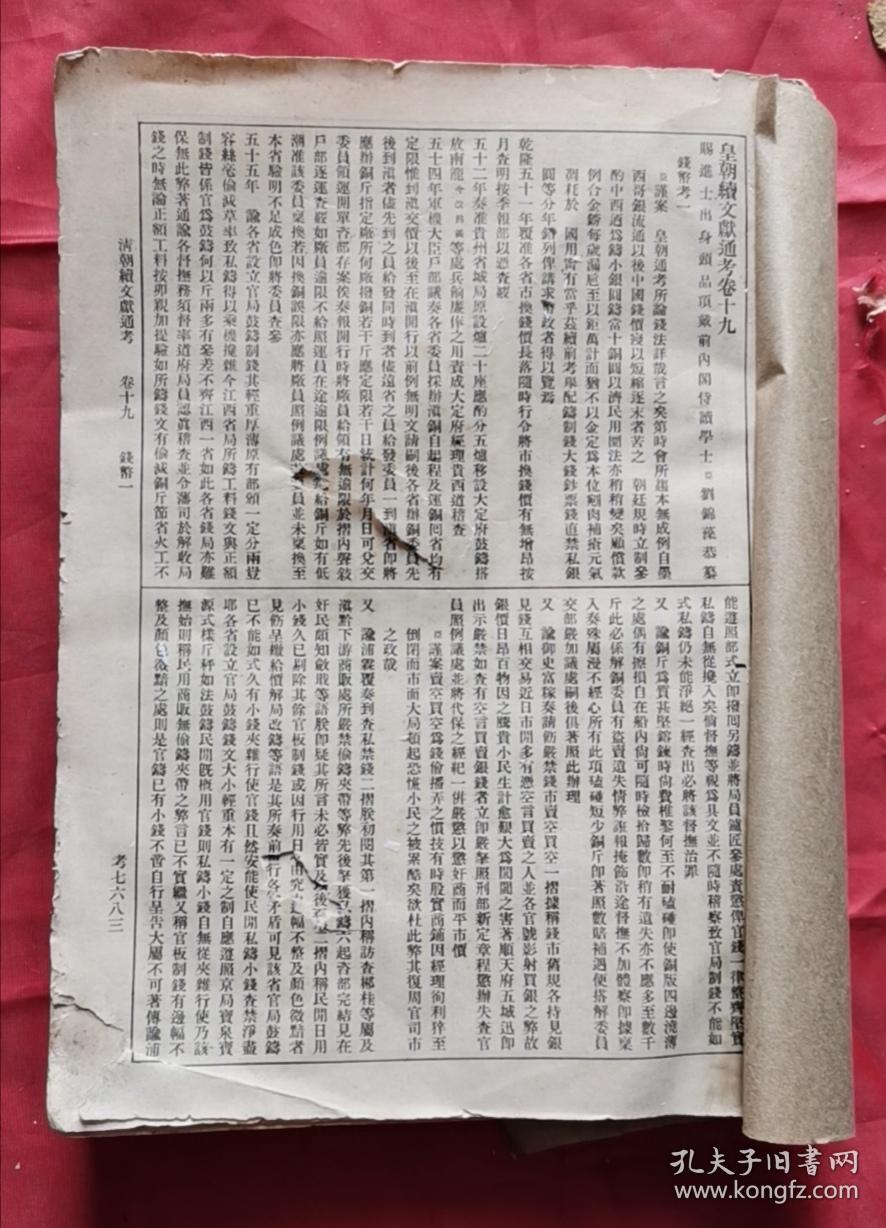 皇朝續文獻通考卷十九
賜進士出身頭品頂戴前內閣侍讀學士臣劉錦藻恭纂
錢幣考一
臣謹案　皇朝通考所論錢法詳哉言之矣第時會所趨本無成例自墨
西哥銀流通以後中國錢價寖以短絀逐末者苦之　朝廷規時立制參
酌中西逎爲鑄小銀圓鑄當十銅圓以濟民用圜法亦稍稍變矣顧償款
例合金鎊每歲漏卮至以鉅萬計而猶不以金定爲本位剜肉補瘡元氣
凋耗於　國用甯有當乎茲續前考舉配鑄制錢大錢鈔票錢直禁私銀
圓等分年臚列俾講求幣政者得以覽焉
乾隆五十一年覆准各省市換錢價長落隨時行令將市換錢價有無增昂按
月查明按季報部以憑查覈
五十二年奏准貴州省城局原設爐二十座應酌分五爐移設大定府鼓鑄搭
放南籠今改興義等處兵餉廉俸之用責成大定府經理貴西道稽查
五十四年軍機大臣戶部議奏各省委員採辦滇銅自起程及運銅囘省均有
定限惟到滇交價以後至在滇開行以前例無明文請嗣後各省辦銅委員先
後到滇者儘先到之員給發同時到者儘遠省之員給發委員一到滇省即將
應辦銅斤指定廠所何廠撥銅若干斤應定限若干日統計何年月日可兌交
委員領運開單咨部存案俟奏報開行時將廠員給領有無逾限於摺內聲敘
戶部逐運查覈如廠員逾限不給照運員在途逾限例議處給銅斤如有低
潮准該委員稟換若因換銅誤限亦應將廠員照例議處員並未稟換至
本省驗明不足成色即將委員查參
五十五年　諭各省設立官局鼓鑄制錢其輕重厚薄原有部頒一定分兩豈
容絲毫偷減草率致私鑄得以乘機攙雜今江西省局所鑄工料錢文與正額
制錢皆係官爲鼓鑄何以斤兩多有參差不齊江西一省如此各省錢局亦難
保無此弊著通諭各督撫務須督率道府局員認眞稽查並令藩司於解收局
錢之時無論正額工料按卯親加提驗如所鑄錢文有偷減銅斤節省火工不
能遵照部式立卽撥囘另鑄並將局員爐匠參處責懲俾官錢一律整齊堅實
私鑄自無從攙入矣倘督撫等視爲具文並不隨時稽察致官局制錢不能如
式私鑄仍未能淨絕一經查出必將該督撫治罪
又　諭銅斤爲質甚堅鎔鍊時尙費椎鑿何至不耐磕碰卽使銅版四邊澆薄
之處偶有擦損自在船內尙可隨時檢拾歸數卽稍有遺失亦不應多至數千
斤此必係解銅委員有盜賣遺失情弊誑報掩飾沿途督撫不加體察卽據稟
入奏殊屬漫不經心所有此項磕碰短少銅斤卽著照數賠補遇便搭解委員
交部嚴加議處嗣後俱著照此辦理
又　諭御史富稼奏請飭嚴禁錢市賣空買空一摺據稱錢市舊規各持見銀
見錢互相交易近日市間多有憑空言買賣之人並各官號影射買銀之弊故
銀價日昂百物因之騰貴小民生計愈艱大爲閭閻之害著順天府五城迅卽
出示嚴禁如查有空言買賣銀錢者立卽嚴拏照刑部新定章程懲辦失查官
員照例議處並將代保之經紀一倂嚴懲以懲奸商而平市價
臣謹案賣空買空爲錢儈播弄之慣技有時殷實商鋪因經理徇利猝至
倒閉而市面大局頓起恐慌小民之被累酷矣欲杜此弊其復周官司市
之政哉
又　諭浦霖覆奏到查私禁錢二摺朕初閱其第一摺內稱訪查郴桂等屬及
滇黔下游商販處所嚴禁偷鑄夾帶等弊先後拏獲鑄六起咨部完結見在
奸民頗知斂戢等語朕卽疑其所言未必皆實及後二摺內稱民間日用
小錢久已剔除其餘官板制錢或因行用日幅不整及顏色微黯者
見飭呈繳給價解局改鑄等語是其所奏前行各矛盾可見該省官局鼓鑄
已不能如式久有小錢夾雜行使官錢且然安能使民間私鑄小錢查禁淨盡
耶各省設立官局鼓鑄錢文大小輕重本有一定之制自應遵照京局寶泉寶
源式樣斤秤如法鼓鑄民間旣槪用官錢則私鑄小錢自無從夾雜行使乃該
撫始則稱民用商販無偷鑄夾帶之弊言已不實繼又稱官板制錢有邊幅不
整及顏色微黯之處則是官鑄已有小錢不啻自行呈告大屬不可著傳諭浦
清朝續文獻通考　卷十九　錢幣一
考七六八三
孔夫子旧书网
www.kongfz.com